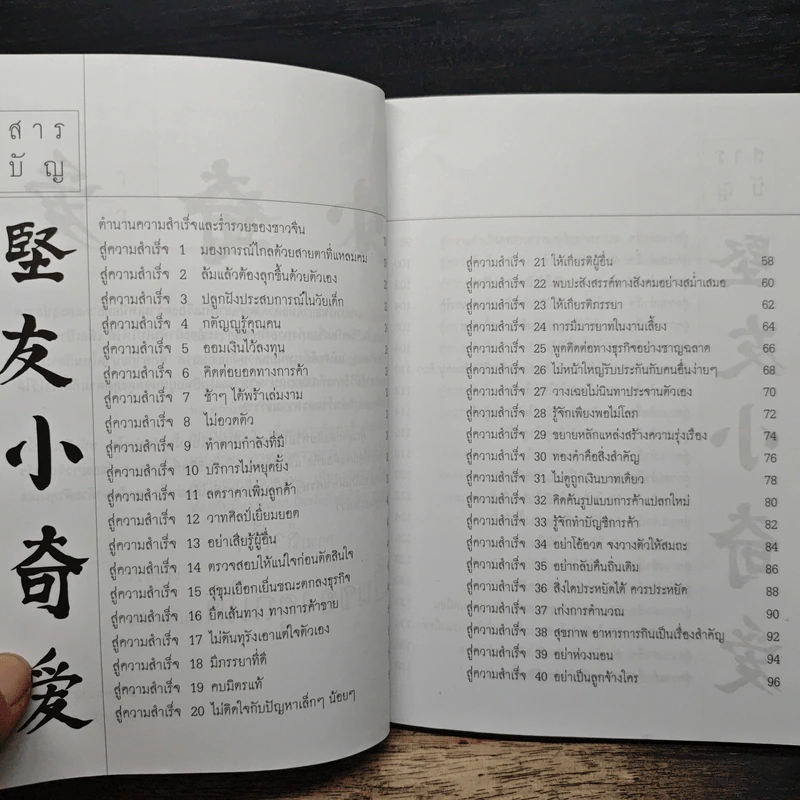 สาร
บัญ
堅
友
小
奇
爱
ตำนานความสำเร็จและร่ำรวยของชาวจีน
สู่ความสำเร็จ 1 มองการณ์ไกลด้วยสายตาที่แหลมคม
สู่ความสำเร็จ 2 ล้มแล้วต้องลุกขึ้นด้วยตัวเอง
สู่ความสำเร็จ 3 ปลูกฝังประสบการณ์ในวัยเด็ก
สู่ความสำเร็จ 4 กตัญญูรู้คุณคน
สู่ความสำเร็จ 5 ออมเงินไว้ลงทุน
สู่ความสำเร็จ 6 คิดต่อยอดทางการค้า
สู่ความสำเร็จ 7 ช้าๆ ได้พร้าเล่มงาม
สู่ความสำเร็จ 8 ไม่อวดตัว
สู่ความสำเร็จ 9 ทำตามกำลังที่มี
สู่ความสำเร็จ 10 บริการไม่หยุดยั้ง
สู่ความสำเร็จ 11 ลดราคาเพิ่มลูกค้า
สู่ความสำเร็จ 12 วาทศิลป์เยี่ยมยอด
สู่ความสำเร็จ 13 อย่าเสียรู้ผู้อื่น
สู่ความสำเร็จ 14 ตรวจสอบให้แน่ใจก่อนตัดสินใจ
สู่ความสำเร็จ 15 สุขุมเยือกเย็นขณะตกลงธุรกิจ
สู่ความสำเร็จ 16 ยึดเส้นทาง ทางการค้าขาย
สู่ความสำเร็จ 17 ไม่ดันทุรังเอาแต่ใจตัวเอง
สู่ความสำเร็จ 18 มีภรรยาที่ดี
สู่ความสำเร็จ 19 คบมิตรแท้
สู่ความสำเร็จ 20 ไม่ติดใจกับปัญหาเล็กๆ น้อยๆ
สู่ความสำเร็จ 21 ให้เกียรติผู้อื่น 58
สู่ความสำเร็จ 22 พบปะสังสรรค์ทางสังคมอย่างสม่ำเสมอ 60
สู่ความสำเร็จ 23 ให้เกียรติภรรยา 62
สู่ความสำเร็จ 24 การมีมารยาทในงานเลี้ยง 64
สู่ความสำเร็จ 25 พูดติดต่อทางธุรกิจอย่างชาญฉลาด 66
สู่ความสำเร็จ 26 ไม่หน้าใหญ่รับประกันกับคนอื่นง่ายๆ 68
สู่ความสำเร็จ 27 วางเฉยไม่นินทาประจานตัวเอง 70
สู่ความสำเร็จ 28 รู้จักเพียงพอไม่โลภ 72
สู่ความสำเร็จ 29 ขยายหลักแหล่งสร้างความรุ่งเรือง 74
สู่ความสำเร็จ 30 ทองคำคือสิ่งสำคัญ 76
สู่ความสำเร็จ 31 ไม่ดูถูกเงินบาทเดียว 78
สู่ความสำเร็จ 32 คิดค้นรูปแบบการค้าแปลกใหม่ 80
สู่ความสำเร็จ 33 รู้จักทำบัญชีการค้า 82
สู่ความสำเร็จ 34 อย่าโอ้อวด จงวางตัวให้สมถะ 84
สู่ความสำเร็จ 35 อย่ากลับคืนถิ่นเดิม 86
สู่ความสำเร็จ 36 สิ่งใดประหยัดได้ ควรประหยัด 88
สู่ความสำเร็จ 37 เก่งการคำนวณ 90
สู่ความสำเร็จ 38 สุขภาพ อาหารการกินเป็นเรื่องสำคัญ 92
สู่ความสำเร็จ 39 อย่าห่วงนอน 94
สู่ความสำเร็จ 40 อย่าเป็นลูกจ้างใคร 96